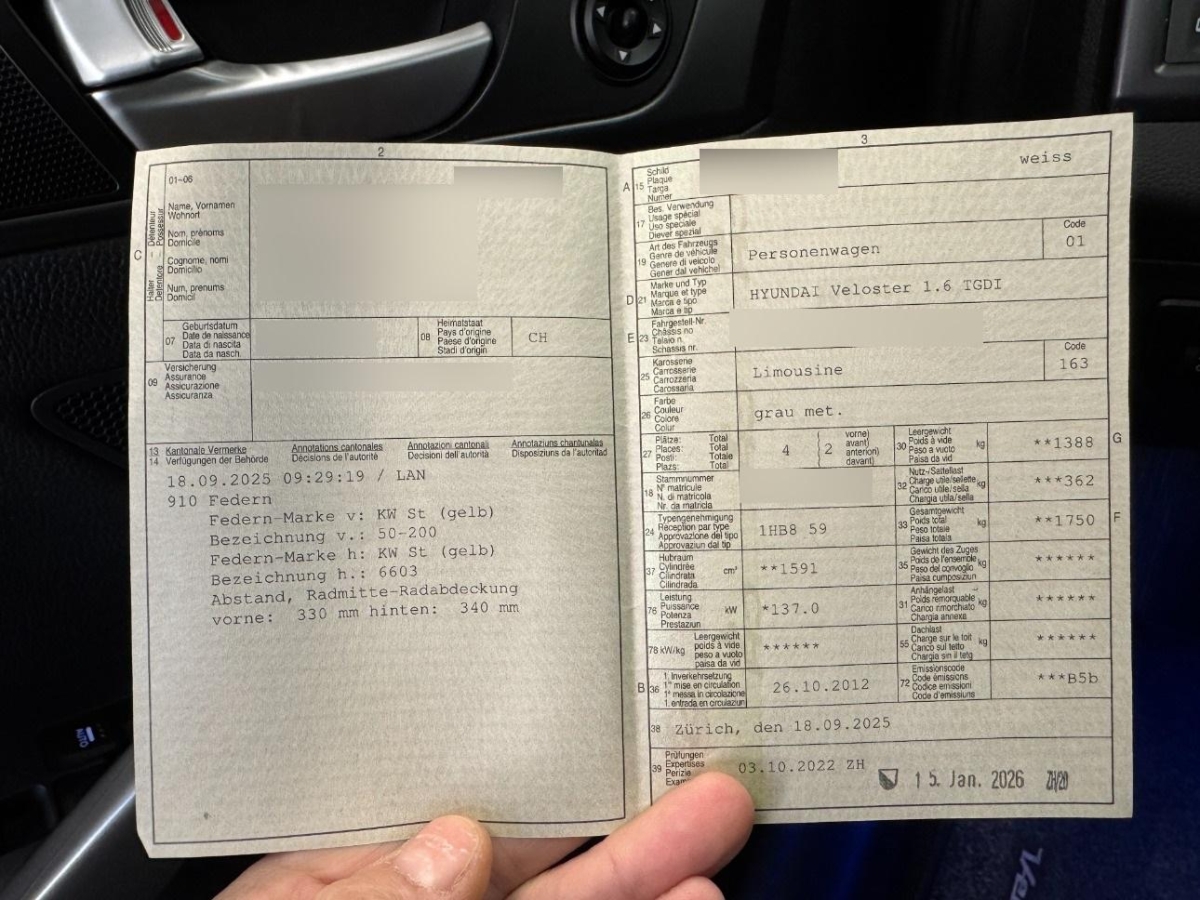 2
01-06
C
Halter – Détenteur
Detentore – Possessur
Name, Vornamen
Wohnort
Nom, prénoms
Domicile
Cognome, nomi
Domicilio
Num, prenums
Domicil
07
Geburtsdatum
Date de naissance
Data di nascita
Data da nasch.
08
Heimatstaat
Pays d'origine
Paese d'origine
Stadi d'origin
CH
09
Versicherung
Assurance
Assicurazione
Assicuranza
13 Kantonale Vermerke Annotations cantonales Annotazioni cantonali Annotaziuns chantunalas
14 Verfügungen der Behörde Décisions de l'autorité Decisioni dell'autorità Disposiziuns da l'autoritad
18.09.2025 09:29:19 / LAN
910 Federn
Federn-Marke v: KW St (gelb)
Bezeichnung v.: 50-200
Federn-Marke h: KW St (gelb)
Bezeichnung h.: 6603
Abstand, Radmitte-Radabdeckung
vorne: 330 mm hinten: 340 mm
3
A 15
Schild
Plaque
Targa
Numer
weiss
17
Bes. Verwendung
Usage spécial
Uso speciale
Diever spezial
19
Art des Fahrzeugs
Genre de véhicule
Genere di veicolo
Gener dal vehichel
Personenwagen
Code
01
D 21
Marke und Typ
Marque et type
Marca e tipo
Marca e tip
HYUNDAI Veloster 1.6 TGDI
E 23
Fahrgestell-Nr.
Châssis no
Telaio n.
Schassis nr.
25
Karosserie
Carrosserie
Carrozzeria
Carossaria
Limousine
Code
163
26
Farbe
Couleur
Colore
Colur
grau met.
27
Plätze: Total
Places: Total
Posti: Totale
Plazs: Total
4
2
vorne)
avant)
anteriori)
davant)
30
Leergewicht
Poids à vide
Peso a vuoto
Paisa da vid
kg
**1388
G
18
Stammnummer
N° matricule
N. di matricola
Nr. da matricla
32
Nutz-/Sattellast
Charge utile/sellette
Carico utile/sella
Chargia utila/sella
kg
***362
24
Typengenehmigung
Réception par type
Approvazione del tipo
Approvaziun dal tip
1HB8 59
33
Gesamtgewicht
Poids total
Peso totale
Paisa totala
kg
**1750
F
37
Hubraum
Cylindrée
Cilindrata
Cilindrada
cm³
**1591
35
Gewicht des Zuges
Poids de l'ensemble
Peso del convoglio
Paisa cumposiziun
kg
******
76
Leistung
Puissance
Potenza
Prestaziun
kW
*137.0
31
Anhängelast
Poids remorquable
Carico rimorchiato
Chargia annexa
kg
******
78 kW/kg
Leergewicht
poids à vide
peso a vuoto
paisa da vid
******
55
Dachlast
Charge sur le toit
Carico sul tetto
Chargia sin il tetg
kg
******
B 36
1. Inverkehrsetzung
1re mise en circulation
1a messa in circolazione
1. entrada en circulaziun
26.10.2012
72
Emissionscode
Code émissions
Codice emissioni
Code d'emissiuns
***B5b
38
Zürich, den 18.09.2025
39
Prüfungen
Expertises
Perizie
03.10.2022 ZH
15. Jan. 2026 ZH/20